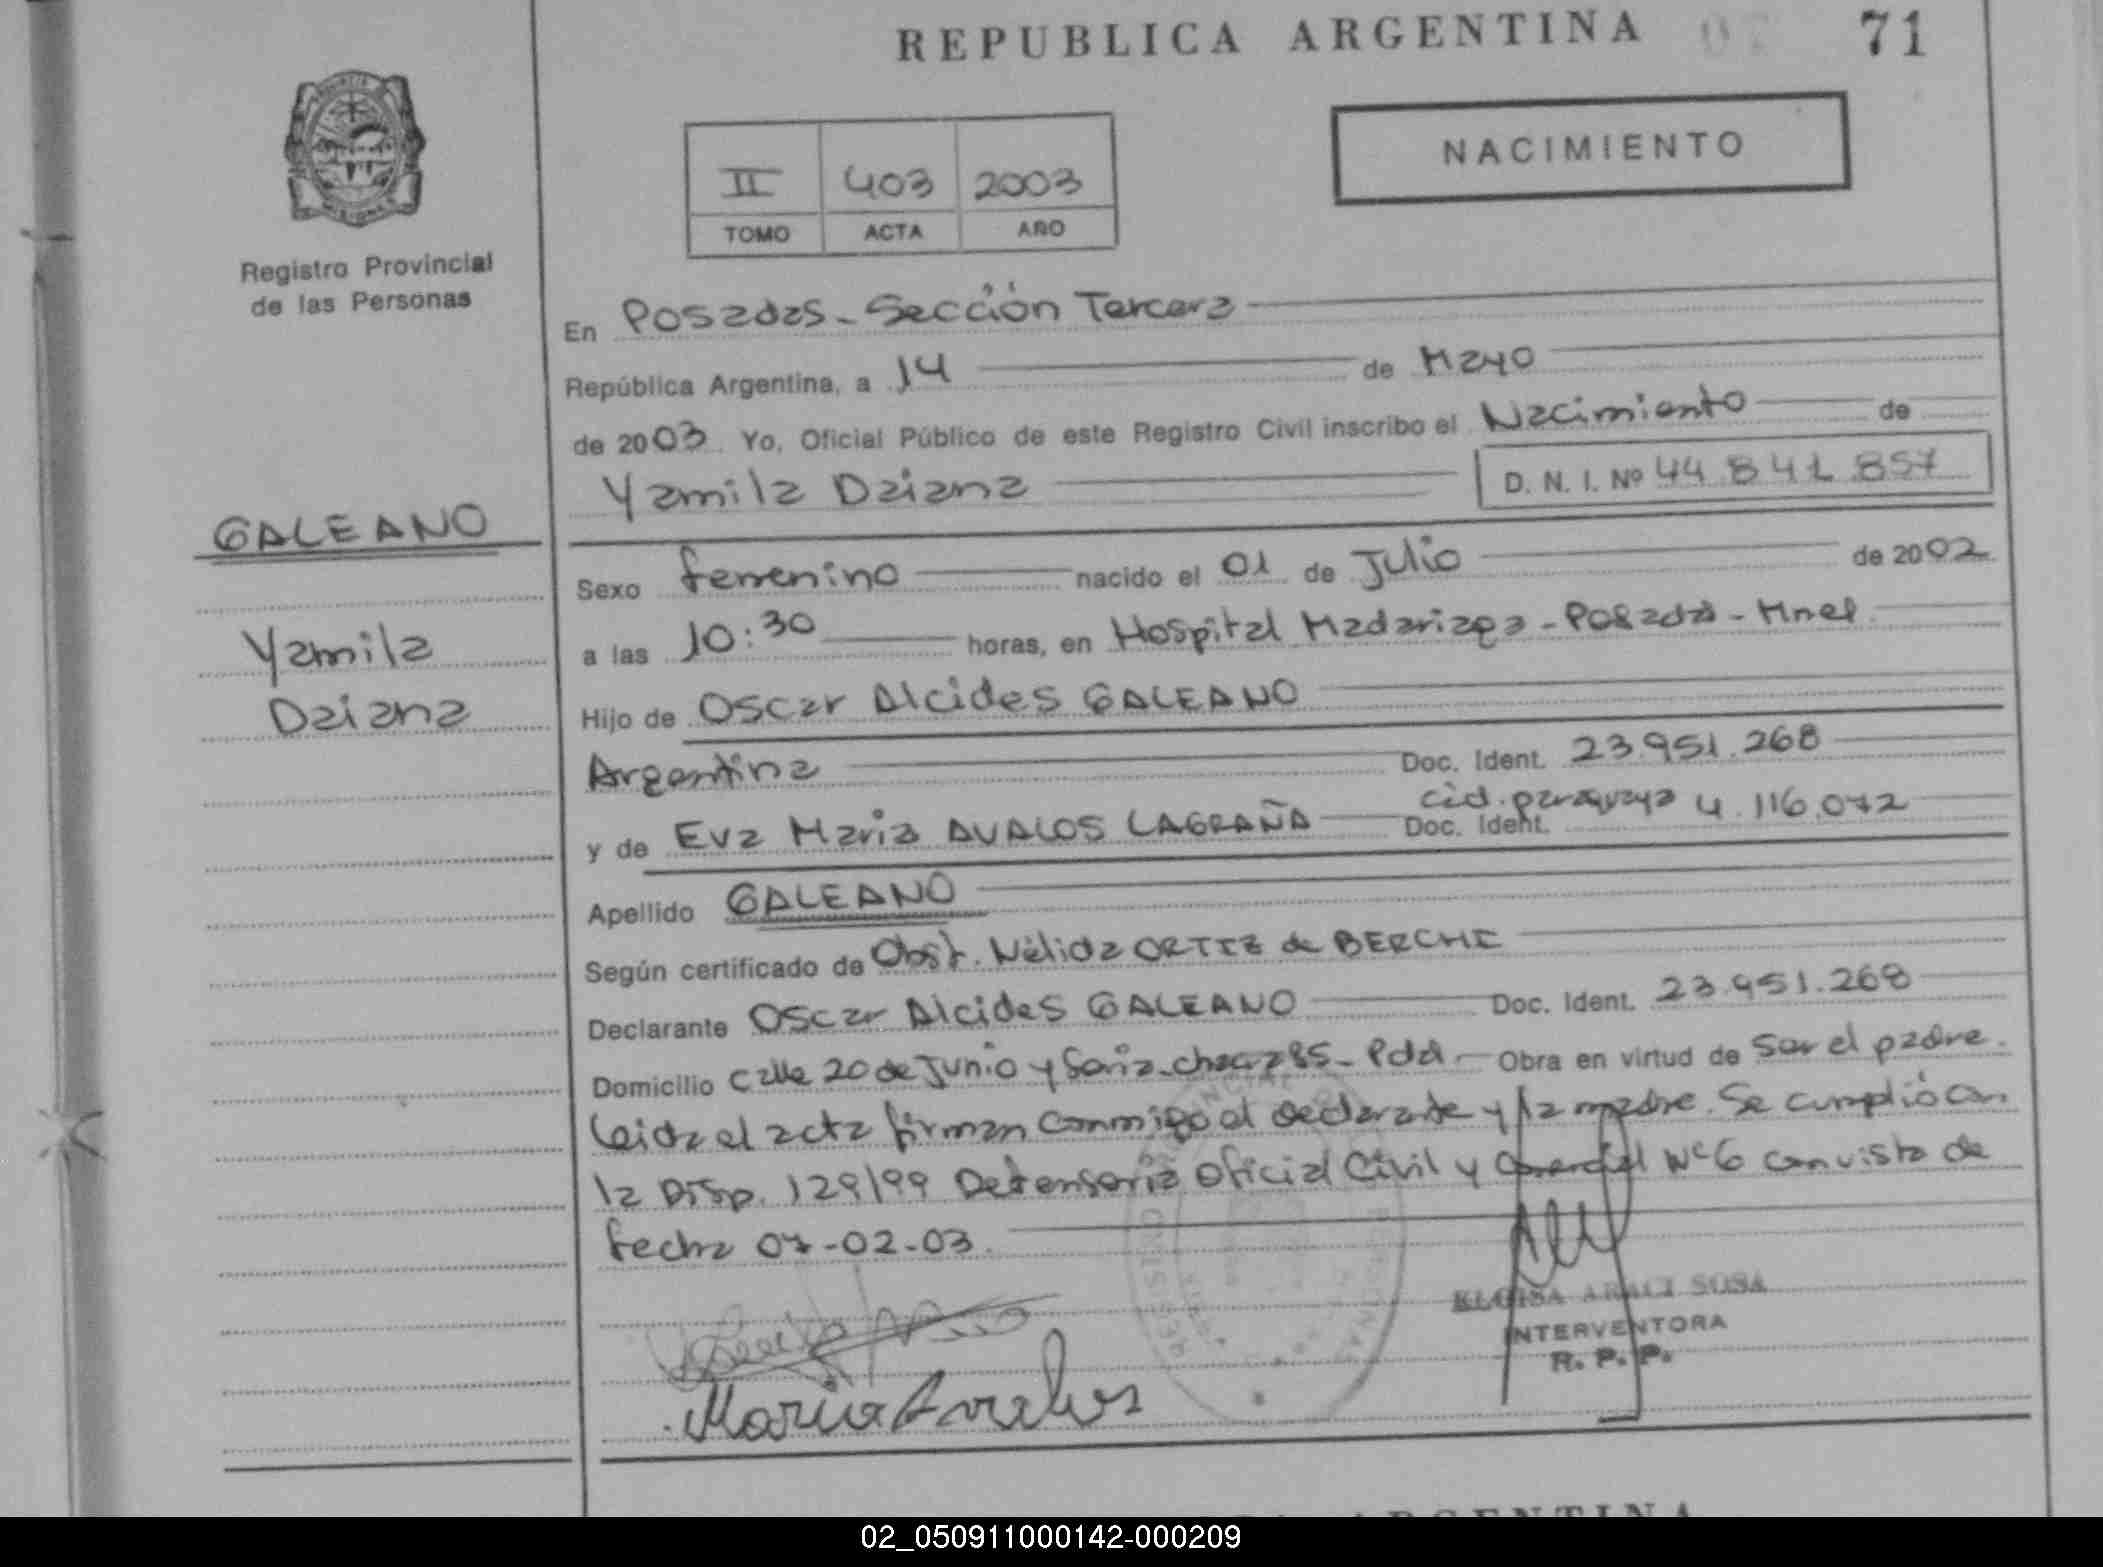 REPUBLICA ARGENTINA 71
NACIMIENTO
II 403 2003
TOMO ACTA AÑO
MISIONES
Registro Provincial
de las Personas
En Posadas - Sección Tercera
República Argentina, a 14 de Mayo
de 2003 Yo, Oficial Público de este Registro Civil inscribo el Nacimiento de
Yamila Daiana D. N. I. Nº 44.841.857
GALEANO
Yamila
Daiana
Sexo femenino nacido el 01 de Julio de 2002
a las 10:30 horas, en Hospital Madariaga - Posadas - Mnes
Hijo de Oscar Alcides GALEANO
Argentina Doc. Ident. 23.951.268
y de Eva Maria AVALOS LAGRAÑA Doc. Ident. céd. paraguaya 4.116.072
Apellido GALEANO
Según certificado de Obst. Nélida ORTIZ de BERCHI
Declarante Oscar Alcides GALEANO Doc. Ident. 23.951.268
Domicilio Calle 20 de Junio y 85 - Pdas - Obra en virtud de Ser el padre.
Leida el acta firman conmigo el declarante y la madre. Se cumplió con
la Disp. 129/99 Defensoria Oficial Civil y Comercial Nº 6 con vista de
fecha 07-02-03.
Maria Avalos
ELOISA ARACI SOSA
INTERVENTORA
R. P. P.
ARGENTINA
02_050911000142-000209